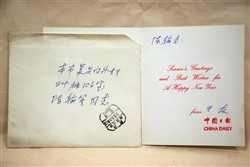 本市复外大街
24楼106号
陈翰笙同志
陈翰老:
Season's Greetings
and Best Wishes for
A Happy New Year
from
中国日报
CHINA DAILY